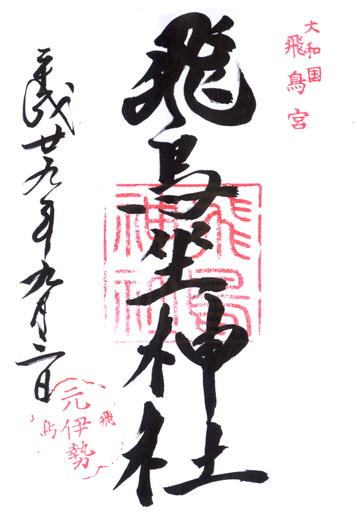 大和国
飛鳥宮
飛鳥坐神社
飛鳥
神社
平成廿九年九月二日
元伊勢
飛鳥